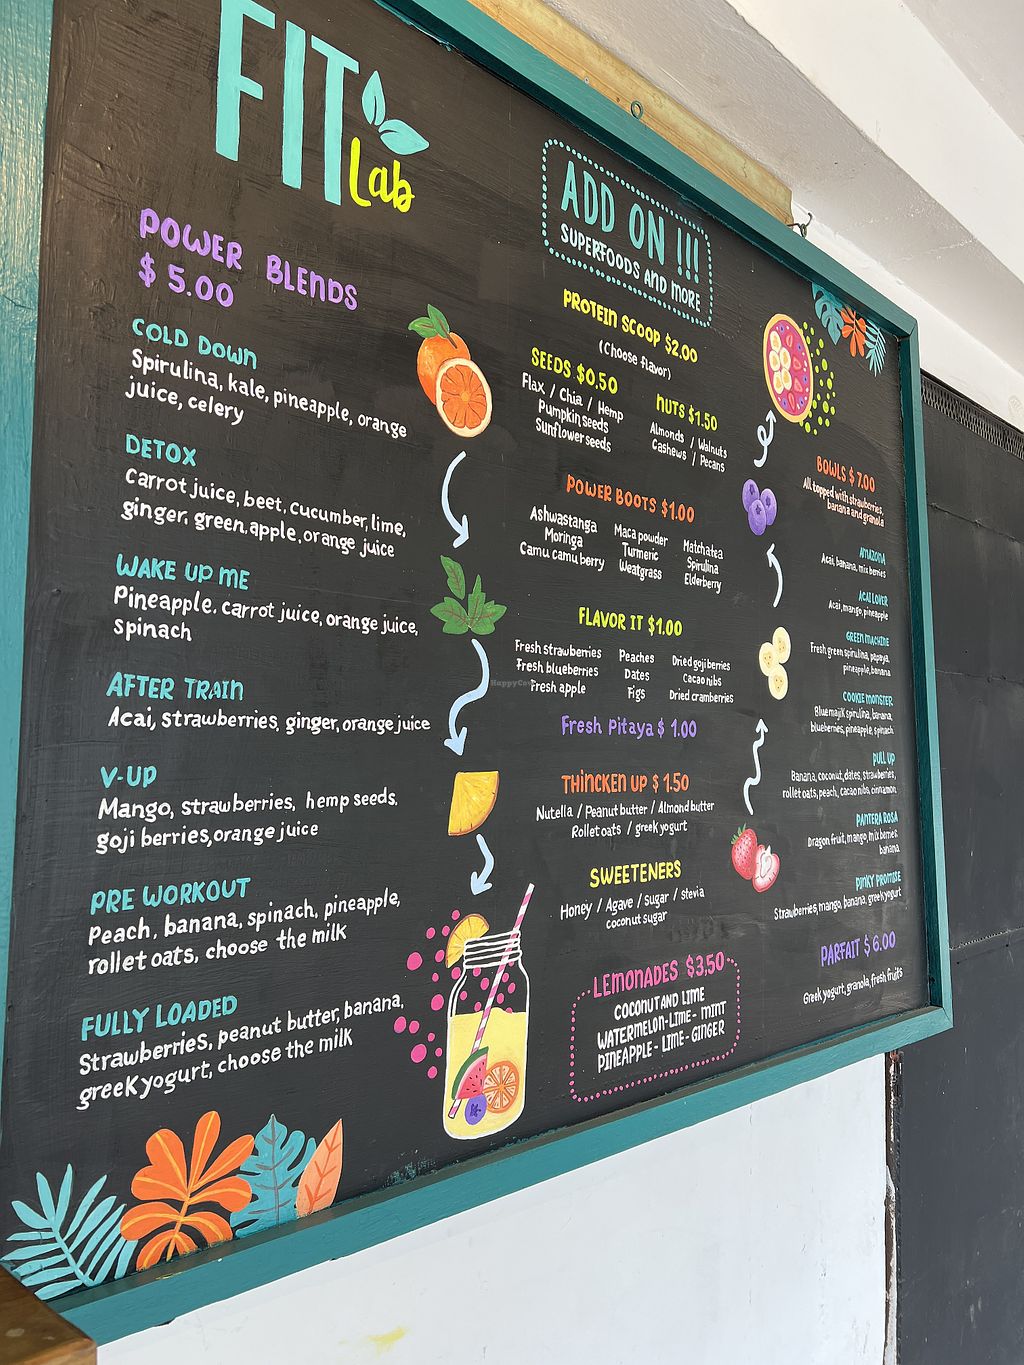 FIT
Lab
POWER BLENDS
$ 5.00
COLD DOWN
Spirulina, kale, pineapple, orange
juice, celery
DETOX
Carrot juice, beet, cucumber, lime,
ginger, green.apple, orange juice
WAKE UP ME
Pineapple. carrot juice, orange juice,
spinach
AFTER TRAIN
Acai, strawberries, ginger, orange juice
V-UP
Mango, strawberries, hemp seeds.
goji berries, orange juice
PRE WORKOUT
Peach, banana, spinach, pineapple,
rollet oats, choose the milk
FULLY LOADED
Strawberries, peanut butter, banana,
greek yogurt, choose the milk
ADD ON !!!
SUPERFOODS AND MORE
PROTEIN SCOOP $2.00
(Choose flavor)
SEEDS $0.50
Flax / Chia / Hemp
Pumpkin seeds
Sunflower seeds
NUTS $1.50
Almonds / Walnuts
Cashews / Pecans
POWER BOOTS $1.00
Ashwastanga
Moringa
Camu camu berry
Maca powder
Turmeric
Weatgrass
Matchatea
Spirulina
Elderberry
FLAVOR IT $1.00
Fresh strawberries
Fresh blueberries
Fresh apple
Peaches
Dates
Figs
Dried goji berries
Cacao nibs
Dried cramberries
HappyCow
Fresh Pitaya $ 1.00
THINCKEN UP $ 1.50
Nutella / Peanut butter / Almond butter
Rollet oats / greek yogurt
SWEETENERS
Honey / Agave / Sugar / stevia
coconut sugar
LEMONADES $3.50
COCONUT AND LIME
WATERMELON-LIME- MINT
PINEAPPLE- LIME-GINGER
BOWLS $ 7.00
All topped with strawberries,
banana and granola
AMAZONA
Acai, banana, mix berries
ACAI LOVER
Acai, mango, pineapple
GREEN MACHINE
Fresh green spirulina, papaya,
pineapple, banana
COOKIE MONSTER
Blue majik spirulina, banana,
blueberries, pineapple, spinach
PULL UP
Banana, coconut, dates, strawberries,
rollet oats, peach, cacao nibs, cinnamon.
PANTERA ROSA
Dragon fruit, mango, mix berries
banana
PINKY PROMISE
Strawberries, mango, banana, greek yogurt
PARFAIT $ 6.00
Greek yogurt, granola, fresh fruits